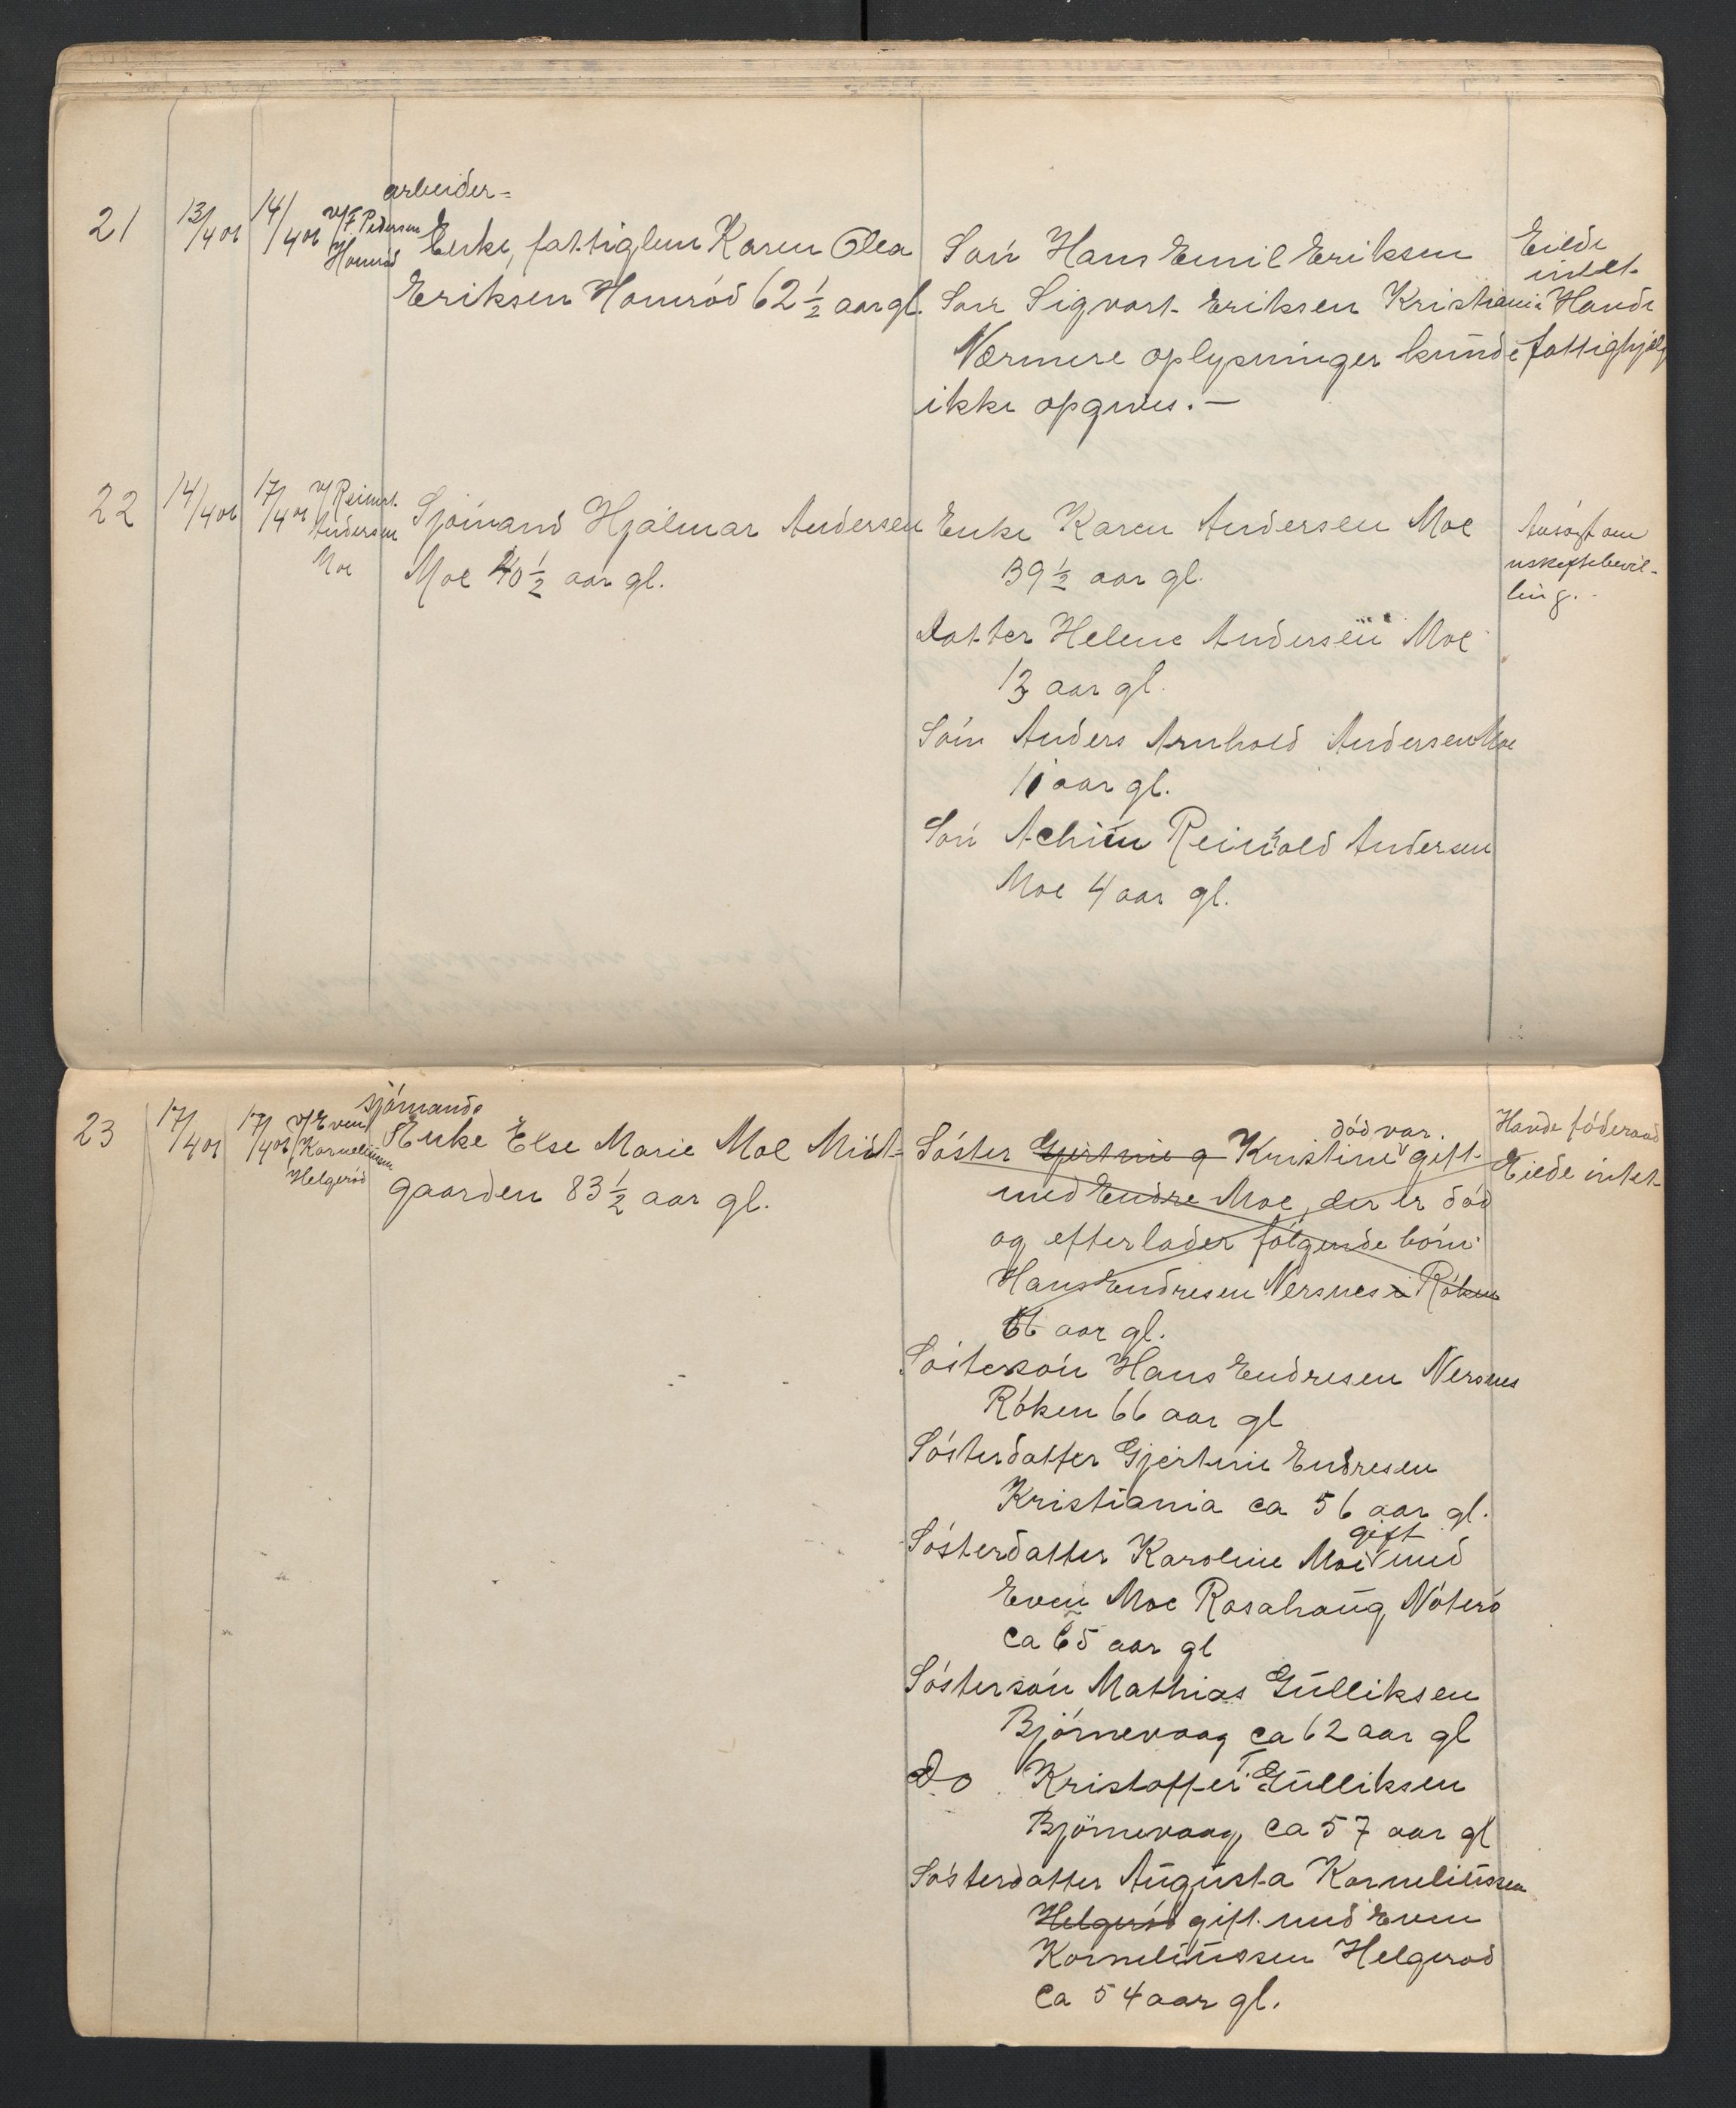 21
13/4 06
14/4 06
v/ F. Pedersen
Homröd
arbeider-
Enke, fattiglem Karen Olea
Eriksen Homröd 62 1/2 aar gl.
Sön Hans Emil Eriksen
Sön Sigvart Eriksen Kristiania
Nærmere oplysninger kunde
ikke opgives.—
Eiede
intet
Havde
fattighjelp
22
14/4 06
17/4 06
v/ Reinert
Andersen
Moe
Sjömand Hjalmar Andersen
Moe 40 1/2 aar gl.
Enke Karen Andersen Moe
39 1/2 aar gl.
Datter Helene Andersen Moe
13 aar gl.
Sön Anders Arnhold Andersen Moe
11 aar gl.
Sön Achim Reinhold Andersen
Moe 4 aar gl.
Ansögt om
uskiftebevil-
ling.
23
17/4 06
17/4 06
v/ Even
Korneliussen
Helgeröd
sjömands
Enke Else Marie Moe Midt-
gaarden 83 1/2 aar gl.
död var.
Söster Gjertrine g Kristine gift
med Endre Moe, der er död
og efterlader fölgende börn:
Hans Endresen Nersnes i Röken
66 aar gl.
Söstersön Hans Endresen Nersnes
Röken 66 aar gl
Sösterdatter Gjertine Endresen
Kristiania ca 56 aar gl.
gift
Sösterdatter Karoline Moe med
Even Moe Rosahaug, Nöterö
ca 65 aar gl
Söstersön Mathias Gulliksen
Björnevaag ca 62 aar gl
Do Kristoffer T. Gulliksen
Björnevaag ca 57 aar gl
Sösterdatter Augusta Korneliussen
Helgeröd gift med Even
Korneliussen Helgeröd
ca 54 aar gl.
Havde föderaad
Eiede intet